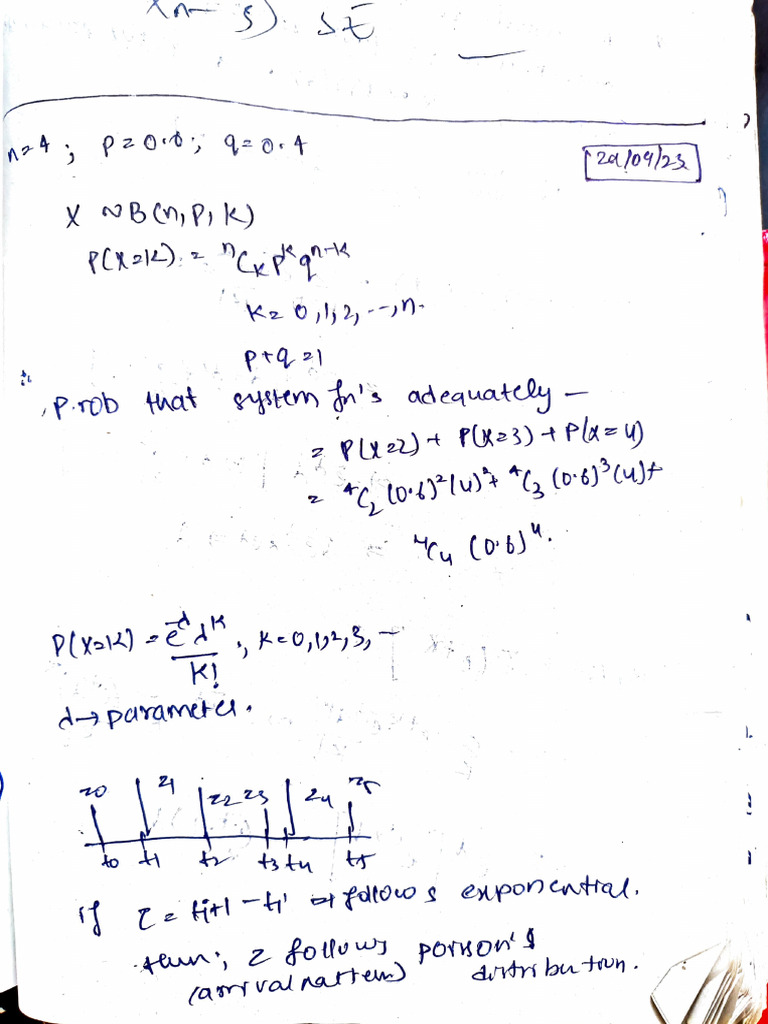 n=4 ; p=0.6 ; q=0.4
29/09/23
X ~ B(n, p, k)
P(X=k) = ⁿCₖ pᵏ qⁿ⁻ᵏ
k= 0,1,2, --, n.
p+q=1
Prob that system fn's adequately —
= P(X=2) + P(X=3) + P(X=4)
= ⁴C₂ (0.6)²(4)² + ⁴C₃ (0.6)³(4) +
⁴C₄ (0.6)⁴.
P(X=K) = e^-λ λ^K / K! ; K=0,1,2,3, —
λ → parameter.
z0 z1 z2 z3 z4 z5
t0 t1 t2 t3 t4 t5
if τ = ti+1 - ti follows exponential.
then; z follows poisson's
(arrival pattern) distribution.